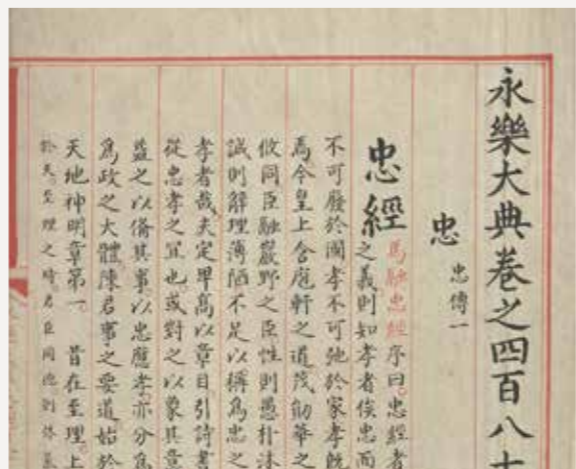 永樂大典卷之四百八十
忠 忠傳一
忠經 馬融忠經序曰忠經者
之義則知孝者俟忠而
不可廢於國孝不可弛於家孝既
焉今皇上含庖軒之道茂勛華之
攸同臣融巖野之臣性則愚朴沐
誠則辭理薄陋不足以稱焉忠之
孝者哉夫定卑高以章目引詩書
從忠孝之宜也或對之以象其意
益之以備其事以忠應孝亦分爲
爲政之大體陳君事之要道始於
天地神明章第一 昔在至理上
於天至理之時君臣同德則休氣